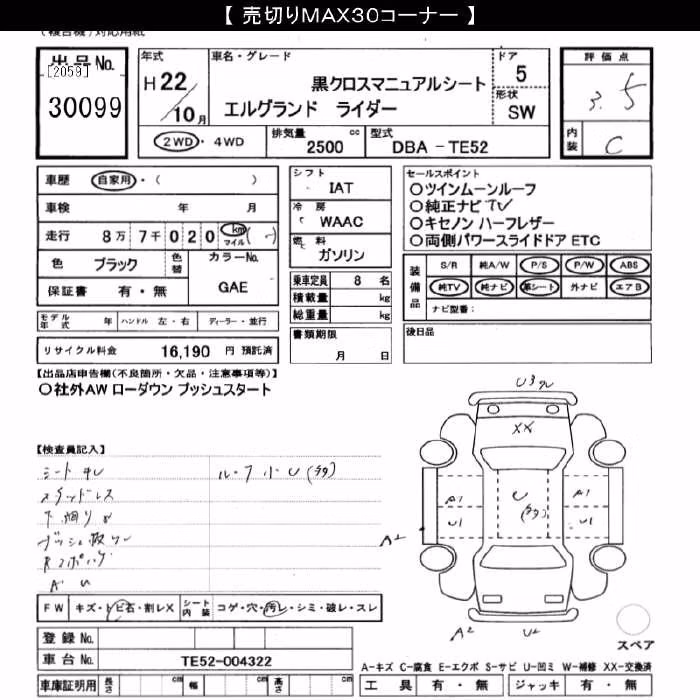 【 売切りMAX30コーナー 】
(複合機)対応用紙
出品No.
[2059]
30099
年式
H 22/10月
車名・グレード
黒クロスマニュアルシート
エルグランド ライダー
ドア
5
形状
SW
評価点
3.5
内装
C
2WD・4WD
排気量 cc
2500
型式
DBA - TE52
車歴 自家用・( )
車検 年 月
走行 8万 7千 020 km マイル
色 ブラック 色替
カラーNo.
GAE
保証書 有・無
シフト
IAT
冷房
WAAC
燃料
ガソリン
乗車定員 8 名
積載量 kg
総重量 kg
セールスポイント
○ツインムーンルーフ
○純正ナビ TV
○キセノン ハーフレザー
○両側パワースライドドア ETC
装備品
S/R 純A/W P/S P/W ABS
純TV 純ナビ 革シート 外ナビ エアB
ナビ型番:
モデル年式 年 ハンドル 左・右 ディーラー・並行
リサイクル料金 16,190 円 預託済
書類期限
月 日
後日品
【出品店申告欄(不良箇所・欠品・注意事項等)】
○社外AW ローダウン プッシュスタート
【検査員記入】
シート
ルーフ小U
U
XX
A1
U1
U
A1
U1
A2
A2
U2
スペア
FW キズ・トビ石・割レX
シート内装 コゲ・穴・汚レ・シミ・破レ・スレ
登録No.
車台No. TE52-004322
車庫証明用 長さ cm 幅 cm 高さ cm
A-キズ C-腐食 E-エクボ S-サビ U-凹ミ W-補修 XX-交換済
工具 有・無 ジャッキ 有・無